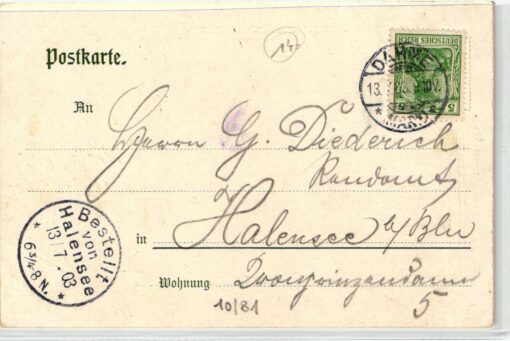 Postkarte.
14
DAHME
13.7.03. 8-10V.
* (MARK) *
DEUTSCHES REICH
5
An
Herrn G. Diederich
Rendant
in Halensee b/Bln
Wohnung
5
10/81
Bestellt
von
Halensee
13/7.03
* 6¾-8 N. *